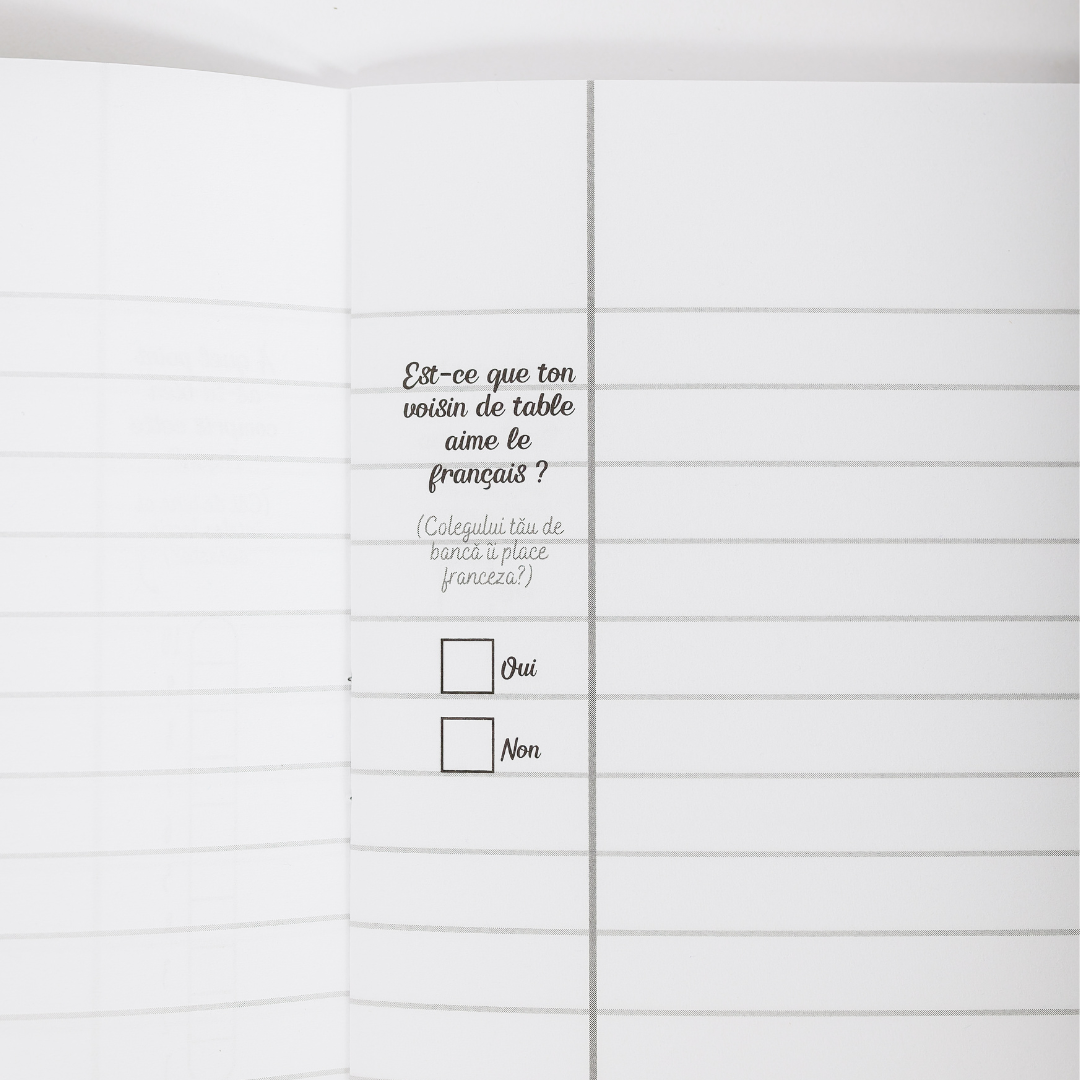 Est-ce que ton
voisin de table
aime le
français ?
(Colegului tău de
bancă îi place
franceza?)
Oui
Non